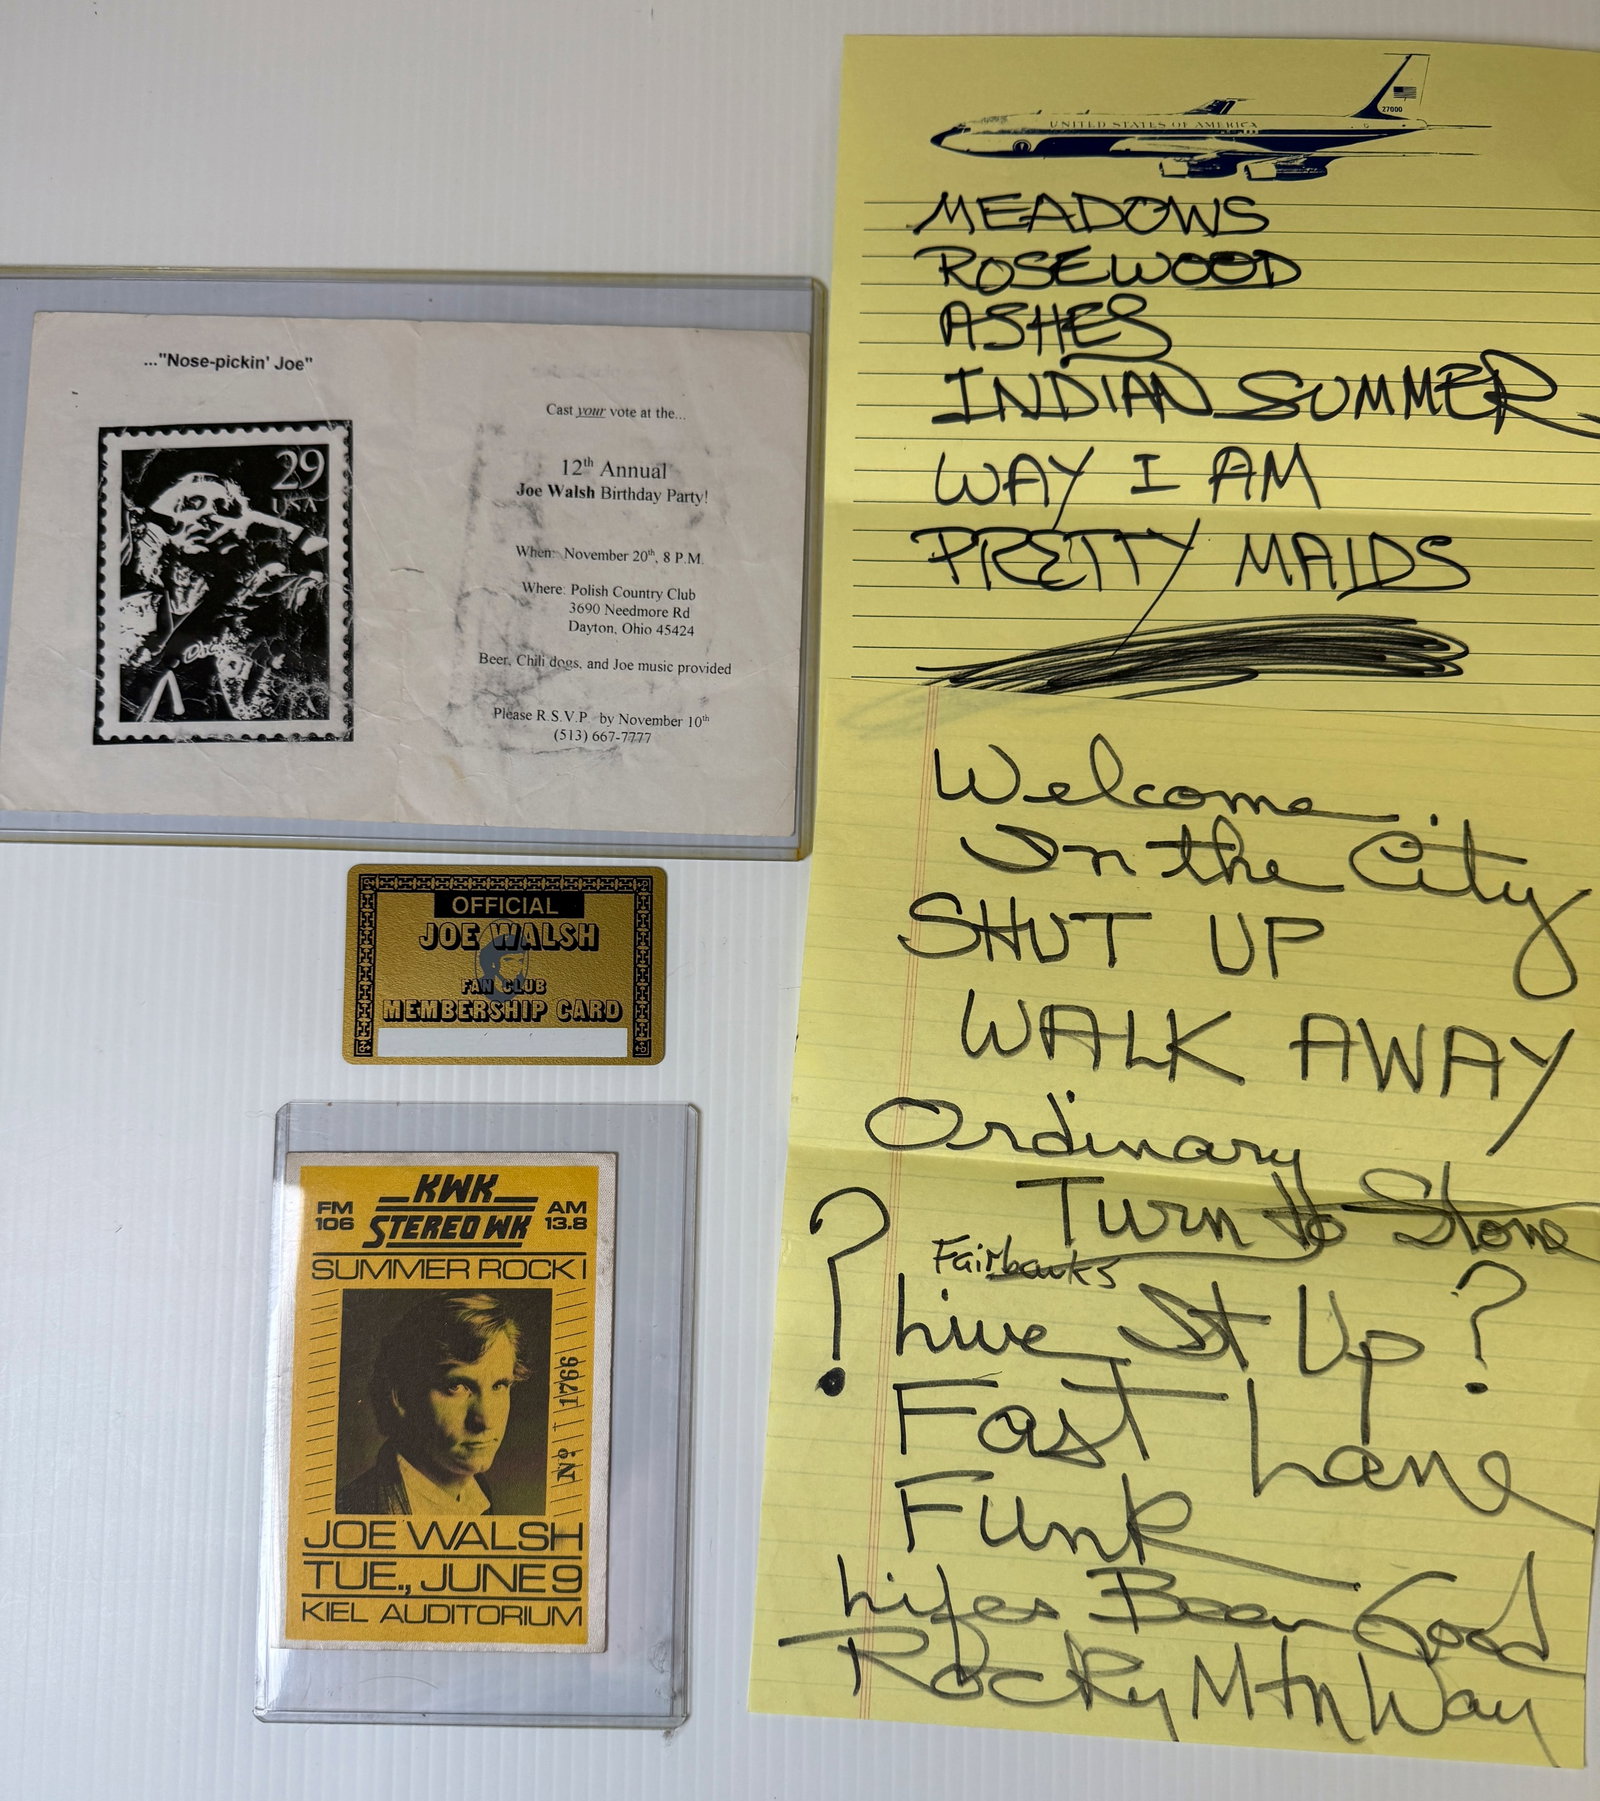 ..."Nose-pickin' Joe"
29
USA
Cast your vote at the...
12th Annual
Joe Walsh Birthday Party!
When: November 20th, 8 P.M.
Where: Polish Country Club
3690 Needmore Rd
Dayton, Ohio 45424
Beer, Chili dogs, and Joe music provided
Please R.S.V.P. by November 10th
(513) 667-7777
OFFICIAL
JOE WALSH
FAN CLUB
MEMBERSHIP CARD
KWK
FM 106
AM 13.8
STEREO WK
SUMMER ROCK I
No. 1766
JOE WALSH
TUE., JUNE 9
KIEL AUDITORIUM
UNITED STATES OF AMERICA
27000
MEADOWS
ROSEWOOD
ASHES
INDIAN SUMMER
WAY I AM
PRETTY MAIDS
Welcome
In the City
SHUT UP
WALK AWAY
Ordinary
Turn to Stone
Fairbanks
? Live It Up ?
Fast Lane
Funk
Lifes Been Good
Rocky Mtn Way